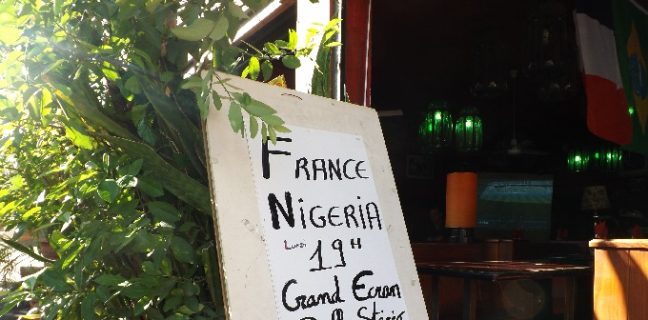 FRANCE
NIGERIA
Lundi 19H
Grand Ecran